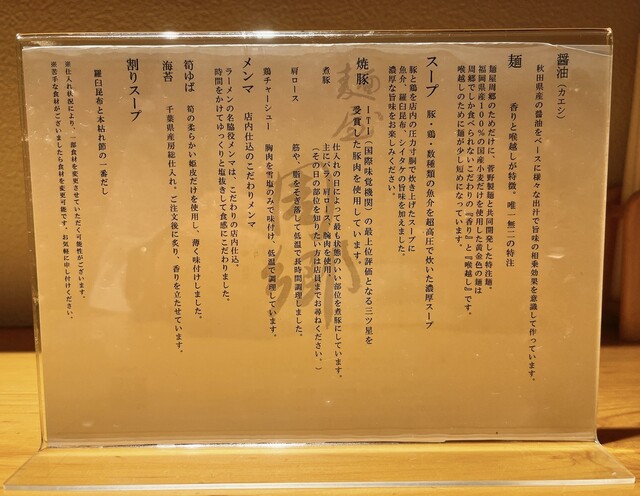 醤油(カエシ)
秋田県産の醤油をベースに様々な出汁で旨味の相乗効果を意識して作っています。
麺 香りと喉越しが特徴、唯一無二の特注
麺屋周郷のためだけに、菅野製麺と共同開発した特注麺。
福岡県産100%の国産小麦だけを使用した黄金色の麺は
周郷でしか食べられないこだわりの『香り』と『喉越し』です。
喉越しのために麺が少し短めになっています。
スープ 豚・鶏・数種類の魚介を超高圧で炊いた濃厚スープ
豚と鶏を店内の圧力寸胴で炊き上げたスープに
魚介、羅臼昆布、シイタケの旨味を加えました。
濃厚な旨味をお楽しみください。
焼豚 ITI(国際味覚機関)の最上位評価となる三ツ星を
受賞した豚肉を使用しています。
煮豚 仕入れの日によって最も状態のいい部位を煮豚にしています。
主にバラ、肩ロース、胸肉を使用。
(その日の部位を知りたい方は店員までお尋ねください。)
肩ロース 筋や、脂をそぎ落して低温で長時間調理しました。
鶏チャーシュー 胸肉を雪塩のみで味付け、低温で調理しています。
メンマ 店内仕込のこだわりメンマ
ラーメンの名脇役メンマは、こだわりの店内仕込。
時間をかけてゆっくりと塩抜きして食感にこだわりました。
筍ゆば 筍の柔らかい姫皮だけを使用し、薄く味付けしました。
海苔 千葉県産房総仕入れ、ご注文後に炙り、香りを立たせています。
割りスープ
羅臼昆布と本枯れ節の一番だし
※仕入れ状況により、一部食材を変更させていただく可能性がございます。
※苦手な食材がございましたら食材を変更可能です。お気軽に申し付けください。